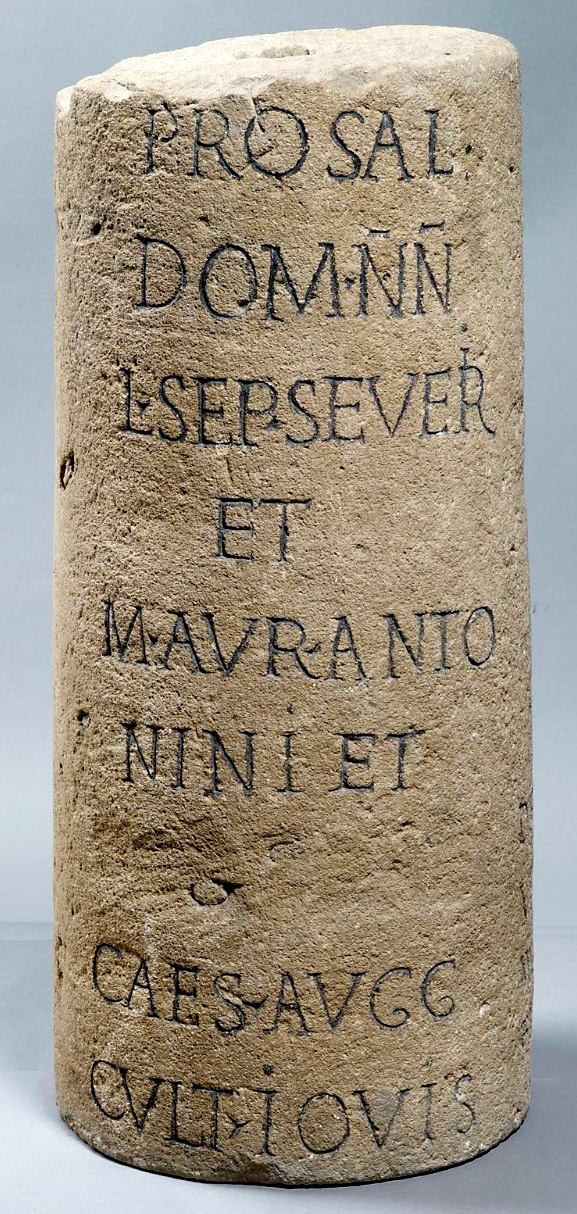 PRO SAL
DOM·N̄N̄
L·SEP·SEVERI
ET
M·AVR·ANTO
NINI ET
CAES·AVGG
CVLT·IOVIS